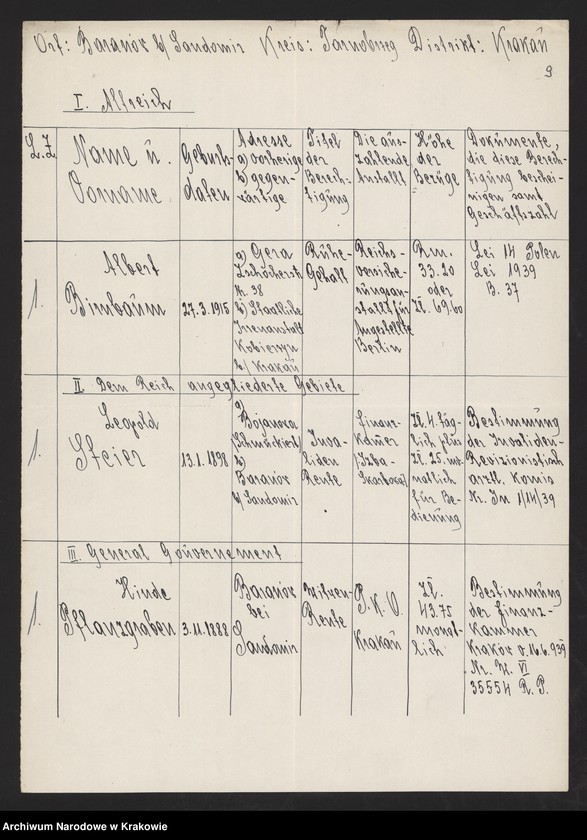 Ort: Baranór b/ Sandomir Kreis: Tarnobrzeg Distrikt: Krakau
9
I. Altreich
L.Z.
Name u.
Vorname
Geburts-
daten
Adresse
a) vorherige
b) gegen-
wärtige
Titel
der
Berech-
tigung
Die aus-
zahlende
Anstalt
Höhe
der
Bezüge
Dokumente,
die diese Berech-
tigung beschei-
nigen samt
Geschäftszahl
1.
Albert
Birnbaum
27.3.1915
a) Gera
Zschocherstr
Nr. 38
b) Staatliche
Irrenanstalt
Kobierzyn
b/ Krakau
Ruhe-
Gehalt
Reichs-
versiche-
rungsan-
stallt für
Angestellte
Berlin
Rm.
33.20
oder
Zł. 69.60
Lei 14 Polen
Lei 1939
B. 37
II. Dem Reich angegliederte Gebiete
1.
Leopold
Steier
13.1.1898
a)
Bojanova
b)
Baranór
b/ Sandomir
Inva-
liden
Rente
Finanz-
Kamer
Izba
Skarbowa
Zł. 4. täg-
lich plus
Zł. 25. mo-
natlich
für Be-
dienung
Bestimmung
der Invaliden-
Revizionistisch
ärztl. Komis
Nr. In 1/14/39
III. General Gouvernement
1.
Hinde
Pflanzgraben
3.11.1888
Baranór
bei
Sandomir
Witwen-
Rente
P.K.O.
Krakau
Zł.
43.75
monat-
lich
Bestimmung
der Finanz-
Kammer
Krakór v. 16.6.939
Nr. H. VI
35554 R. P.
Archiwum Narodowe w Krakowie